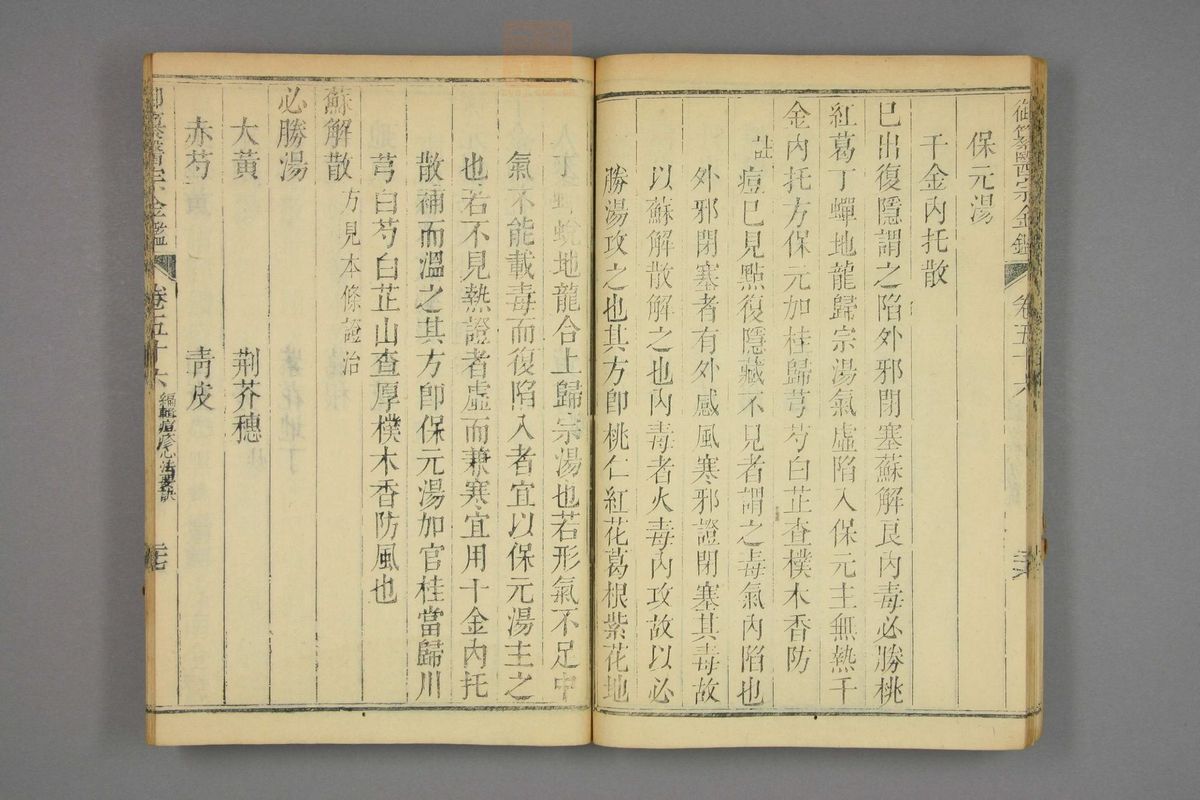 御纂醫宗金鑑 卷五十六
保元湯
千金內托散
已出復隱謂之陷外邪閉塞蘇解良內毒必勝桃
紅葛丁蟬地龍歸宗湯氣虛陷入保元主無熱千
金內托方保元加桂歸芎芍白芷查樸木香防
註痘已見點復隱藏不見者謂之毒氣內陷也
外邪閉塞者有外感風寒邪證閉塞其毒故
以蘇解散解之也內毒者火毒內攻故以必
勝湯攻之也其方卽桃仁紅花葛根紫花地
丁蟬蛻地龍合上歸宗湯也若形氣不足中
氣不能載毒而復陷入者宜以保元湯主之
也若不見熱證者虛而兼寒宜用千金內托
散補而溫之其方卽保元湯加官桂當歸川
芎白芍白芷山查厚樸木香防風也
蘇解散 方見本條證治
必勝湯
大黃 荆芥穗
赤芍 青皮
御纂醫宗金鑑 卷五十六 編輯痘疹心法要訣 二十七